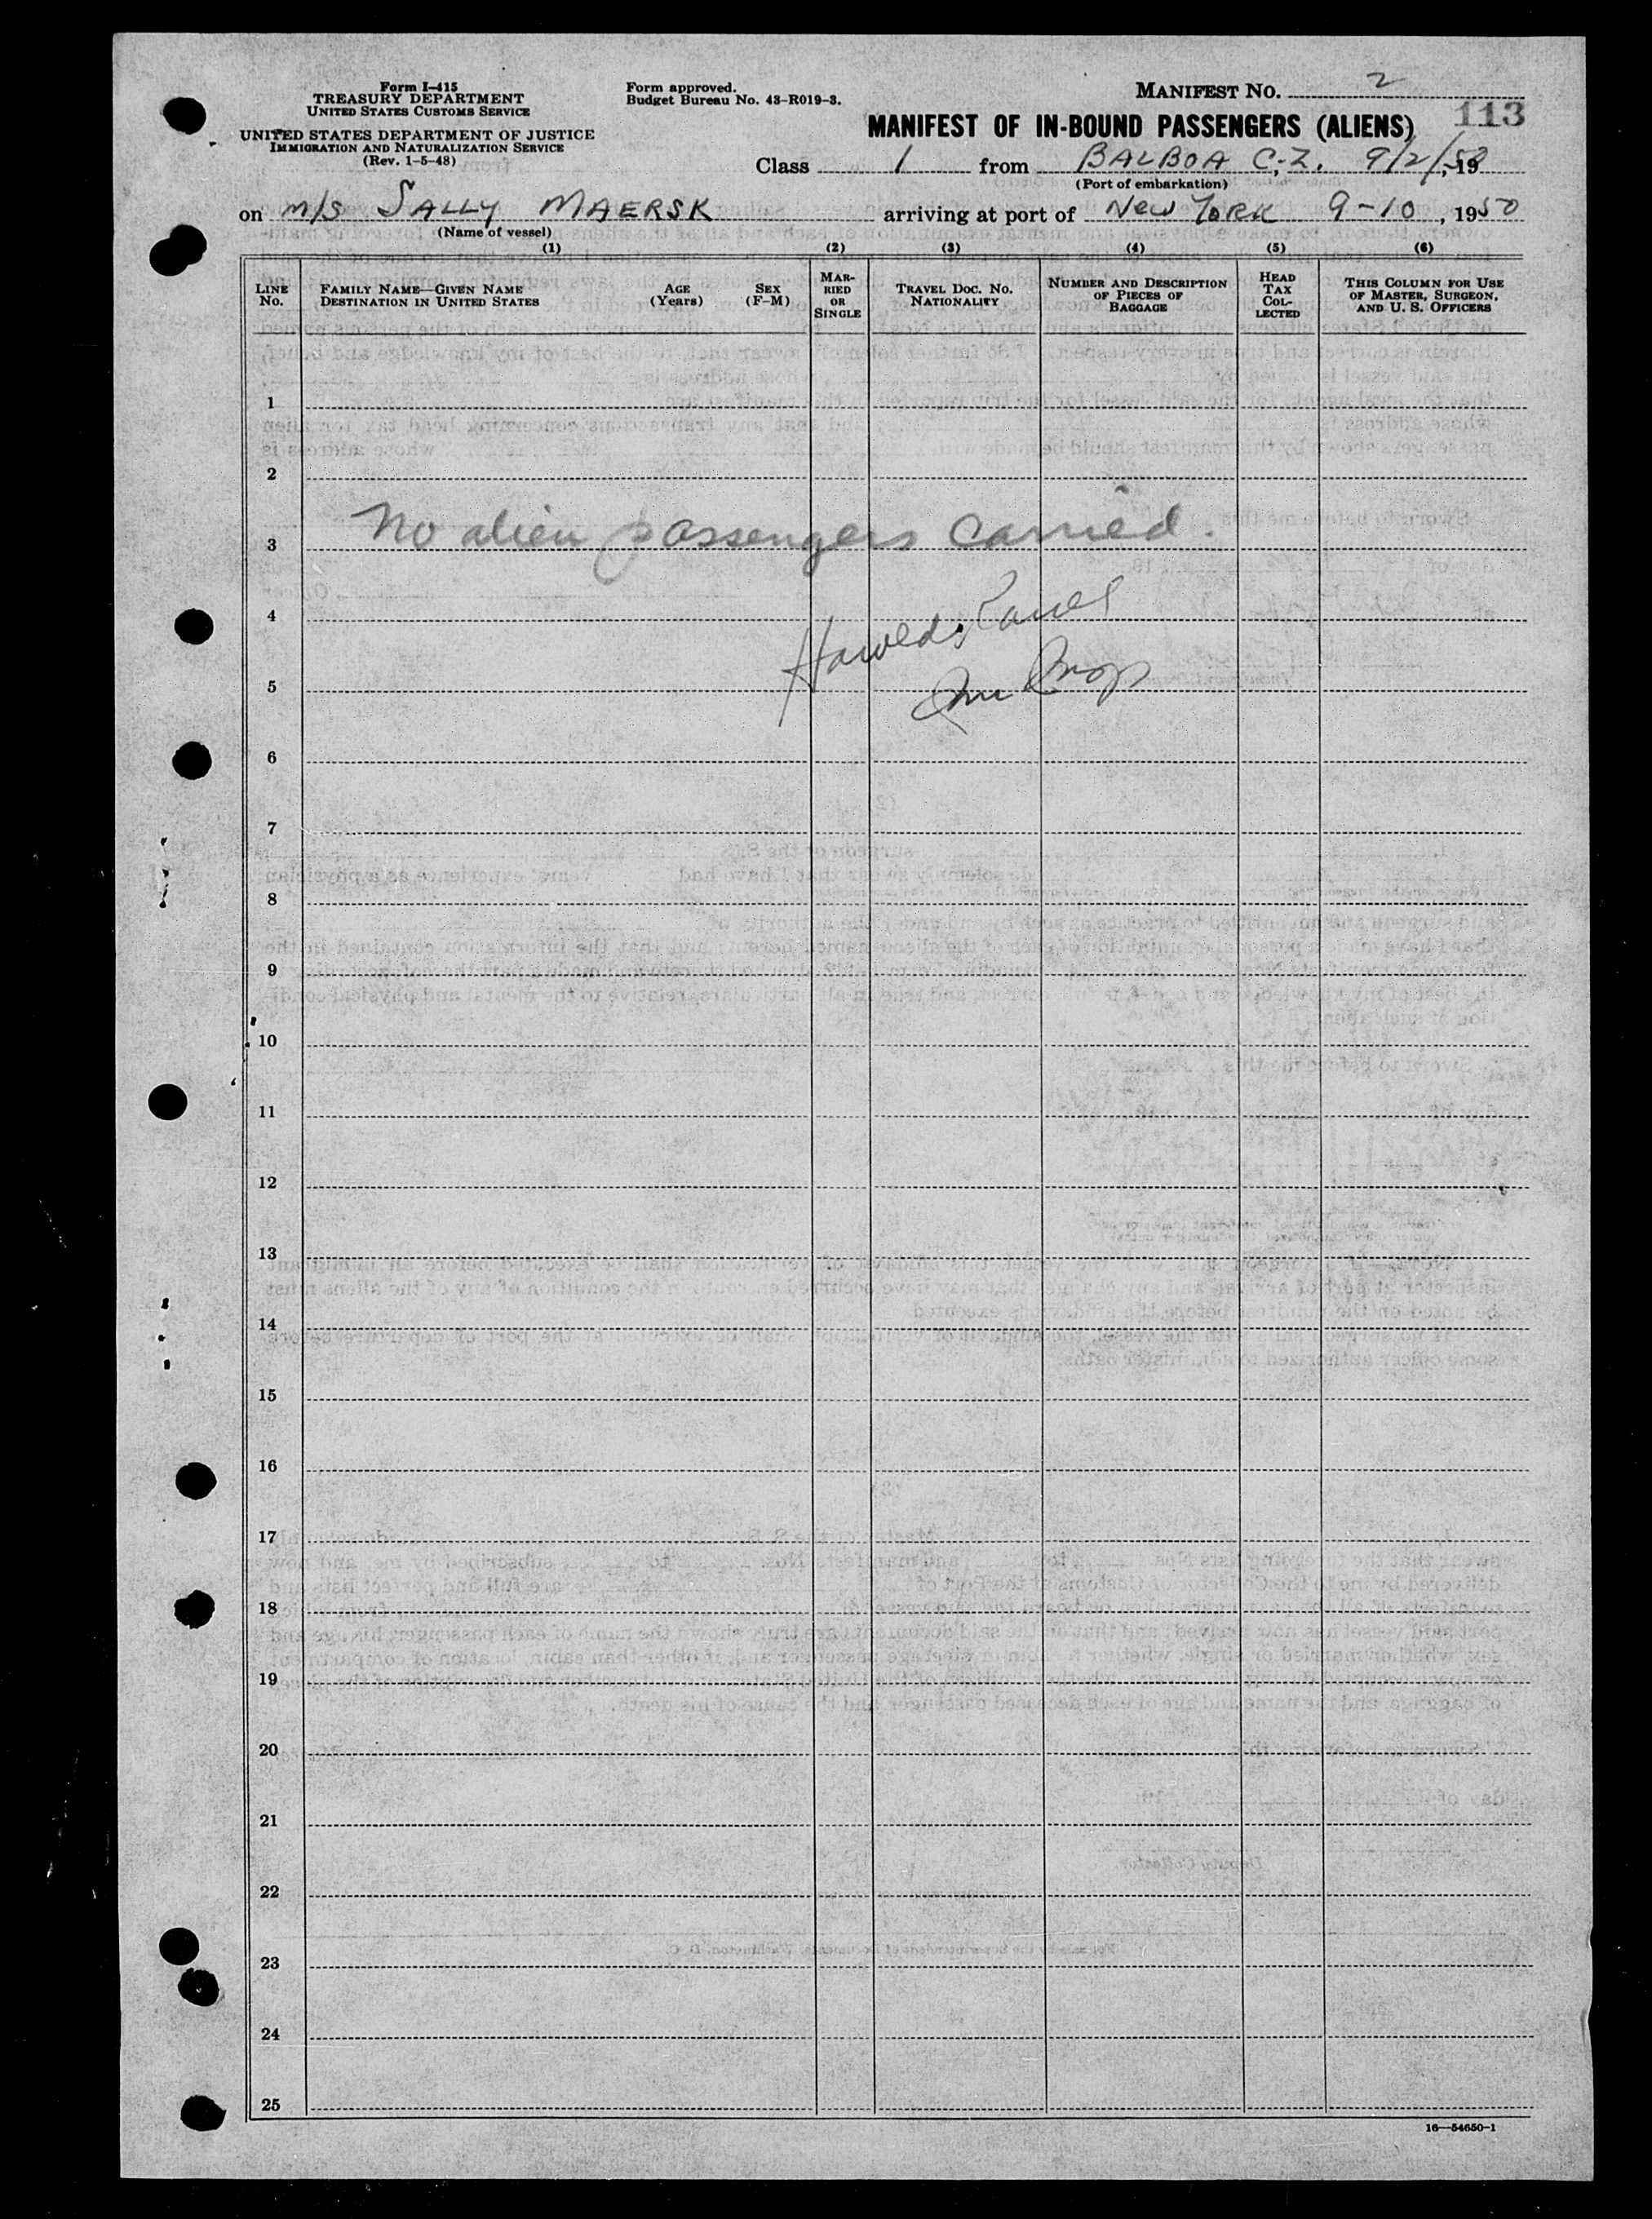 Form I-415
TREASURY DEPARTMENT
UNITED STATES CUSTOMS SERVICE
UNITED STATES DEPARTMENT OF JUSTICE
IMMIGRATION AND NATURALIZATION SERVICE
(Rev. 1-5-48)
Form approved.
Budget Bureau No. 43-R019-3.
MANIFEST No. 2
113
MANIFEST OF IN-BOUND PASSENGERS (ALIENS)
Class 1 from BALBOA C.Z. 9/2/, 1950
(Port of embarkation)
on M/S SALLY MAERSK arriving at port of NEW YORK 9-10, 1950
(Name of vessel)
(1) (2) (3) (4) (5) (6)
LINE No. FAMILY NAME—GIVEN NAME DESTINATION IN UNITED STATES AGE (Years) SEX (F-M) MARRIED OR SINGLE TRAVEL DOC. No. NATIONALITY NUMBER AND DESCRIPTION OF PIECES OF BAGGAGE HEAD TAX COLLECTED THIS COLUMN FOR USE OF MASTER, SURGEON, AND U. S. OFFICERS
1
2
No alien passengers carried.
3
4
Harold
5
6
7
8
9
10
11
12
13
14
15
16
17
18
19
20
21
22
23
24
25
16—54650-1